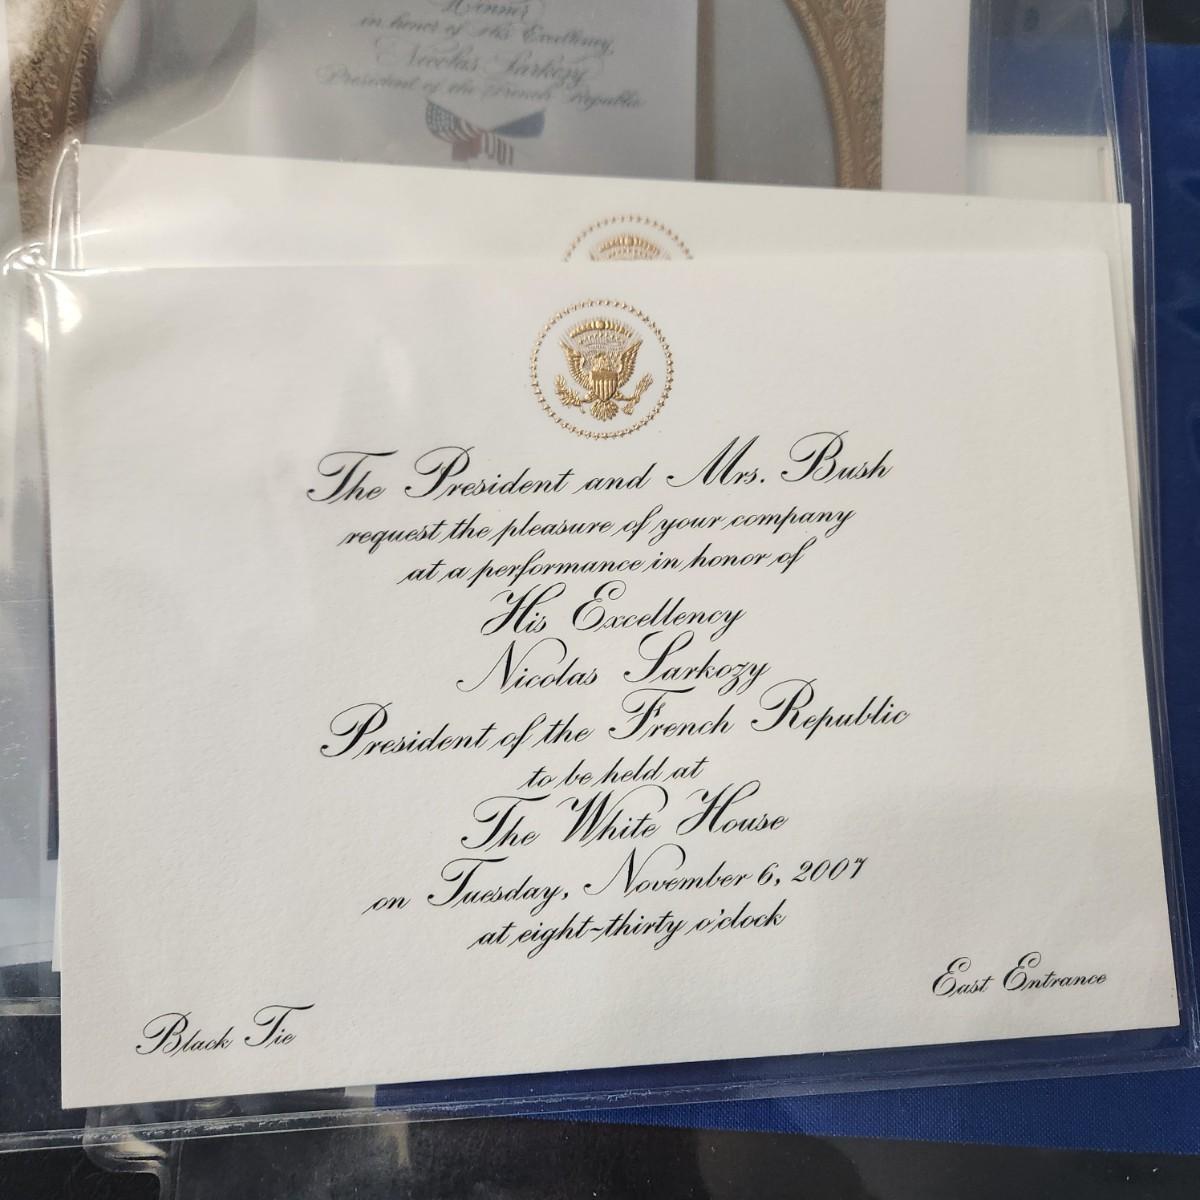 Dinner
in honor of His Excellency,
Nicolas Sarkozy
President of the French Republic
The President and Mrs. Bush
request the pleasure of your company
at a performance in honor of
His Excellency
Nicolas Sarkozy
President of the French Republic
to be held at
The White House
on Tuesday, November 6, 2007
at eight-thirty o'clock
East Entrance
Black Tie